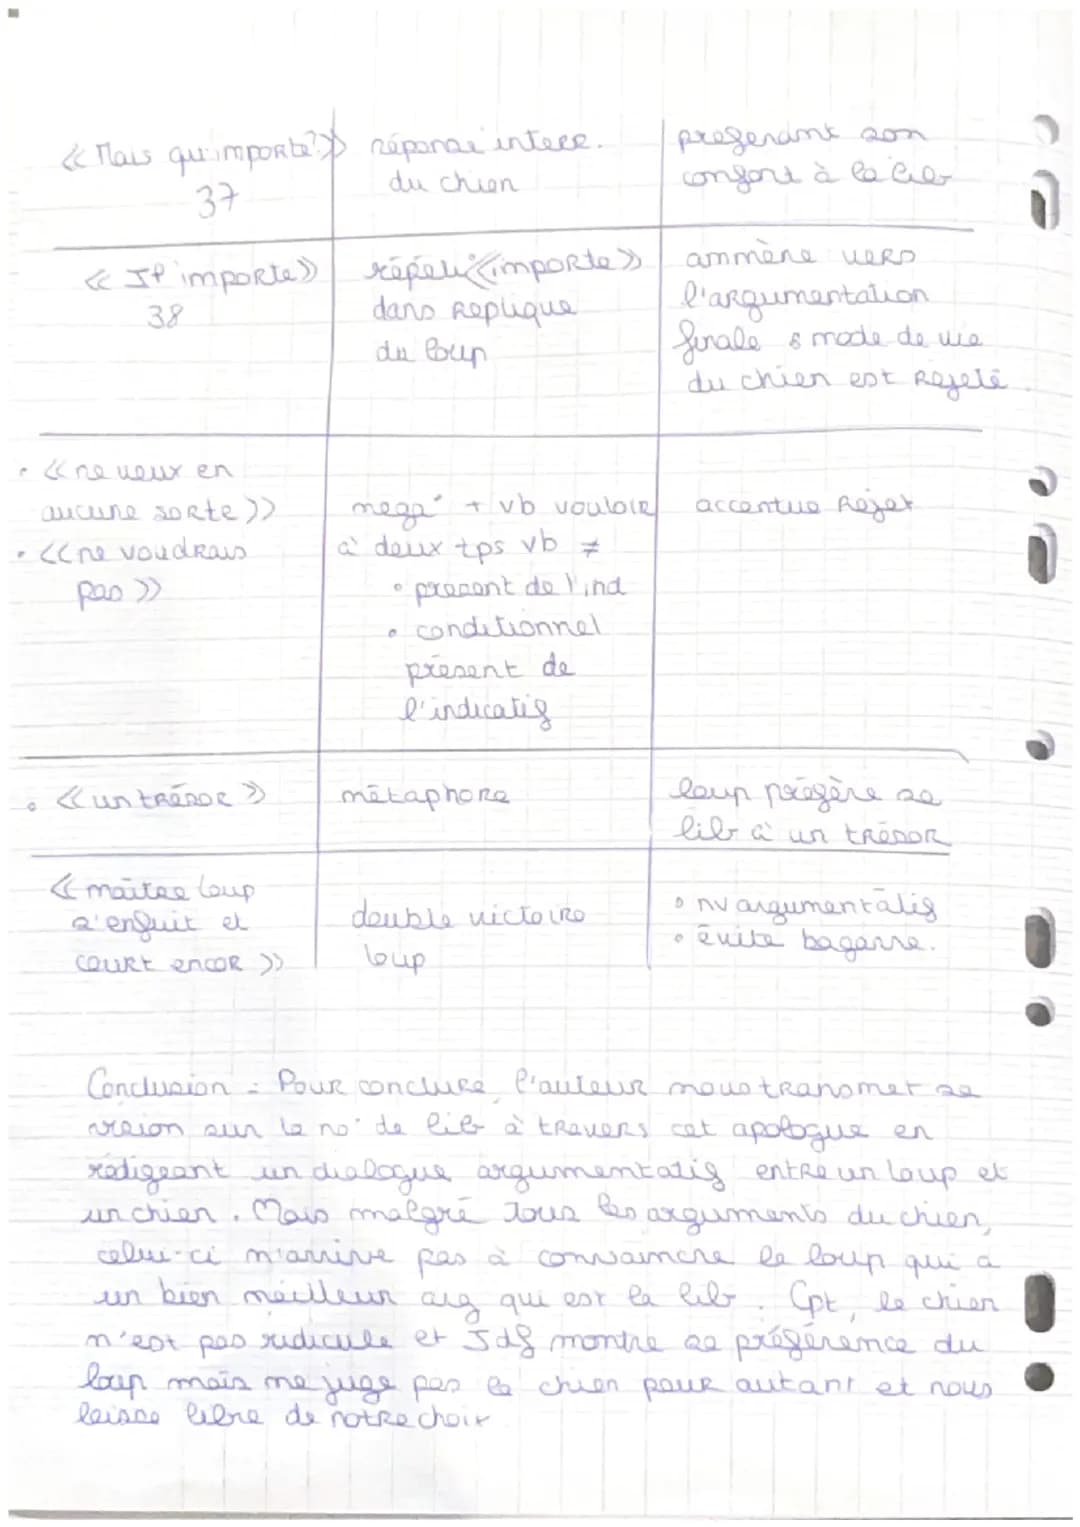 << Mais qu'importe? >>
37
réponse interr.
du chien
préferant son
confort à la lib
<< Il importe >>
38
répéti° <<importe>>
dans Replique
du loup
ammène vers
l'argumentation
finale & mode de vie
du chien est Rejeté.
• << ne veux en
aucune sorte >>
• << ne voudrais
pas >>
nega° + vb vouloir
à deux tps vb ≠
• présent de l'ind
• conditionnel
présent de
l'indicatif
accentue Rejet
• << un trésor >>
métaphore
loup préfère sa
lib à un trésor
<< maître loup
s'enfuit et
court encor >>
double victoire
loup
• nv argumentatif
• évite bagarre.
Conclusion = Pour conclure, l'auteur nous transmet sa
vision sur la no° de lib à travers cet apologue en
rédigeant un dialogue argumentatif entre un loup et
un chien. Mais malgré tous les arguments du chien,
celui-ci n'arrive pas à convaincre le loup qui a
un bien meilleur arg qui est la lib. Cpt, le chien
n'est pas ridicule et Jdlf montre sa préférence du
loup mais ne juge pas le chien pour autant et nous
laisse libre de notre choix